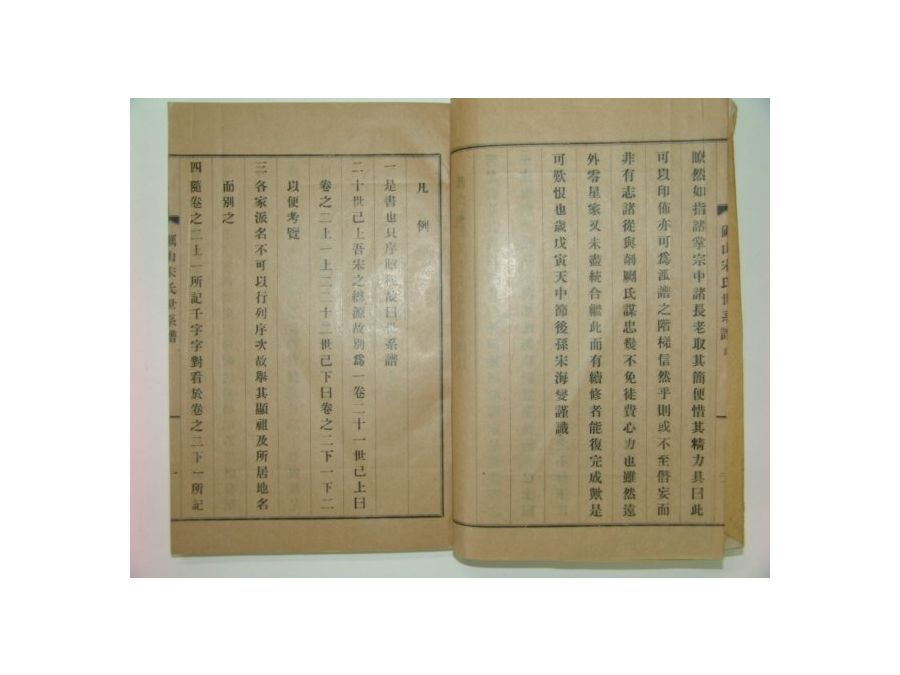 瞭然如指諸掌宗中諸長老取其簡便惜其精力具曰此
可以印佈亦可爲派譜之階梯信然乎則或不至僭妄而
非有志諸從與剞劂氏謀忠幾不免徒費心力也雖然遠
外零星家又未盡統合繼此而有續修者能復完成歟是
可歎恨也歲戊寅天中節後孫宋海燮謹識
凡例
一是書也只序昭穆故曰世系譜
二十世己上吾宋之總源故別爲一卷二十一世己上曰
卷之二上一上二二十二世己下曰卷之二下一下二
以便考覽
三各家派名不可以行列序次故擧其顯祖及所居地名
而別之
四隨卷之二上一所記千字字對看於卷之二下一所記
礪山宋氏世系譜
一